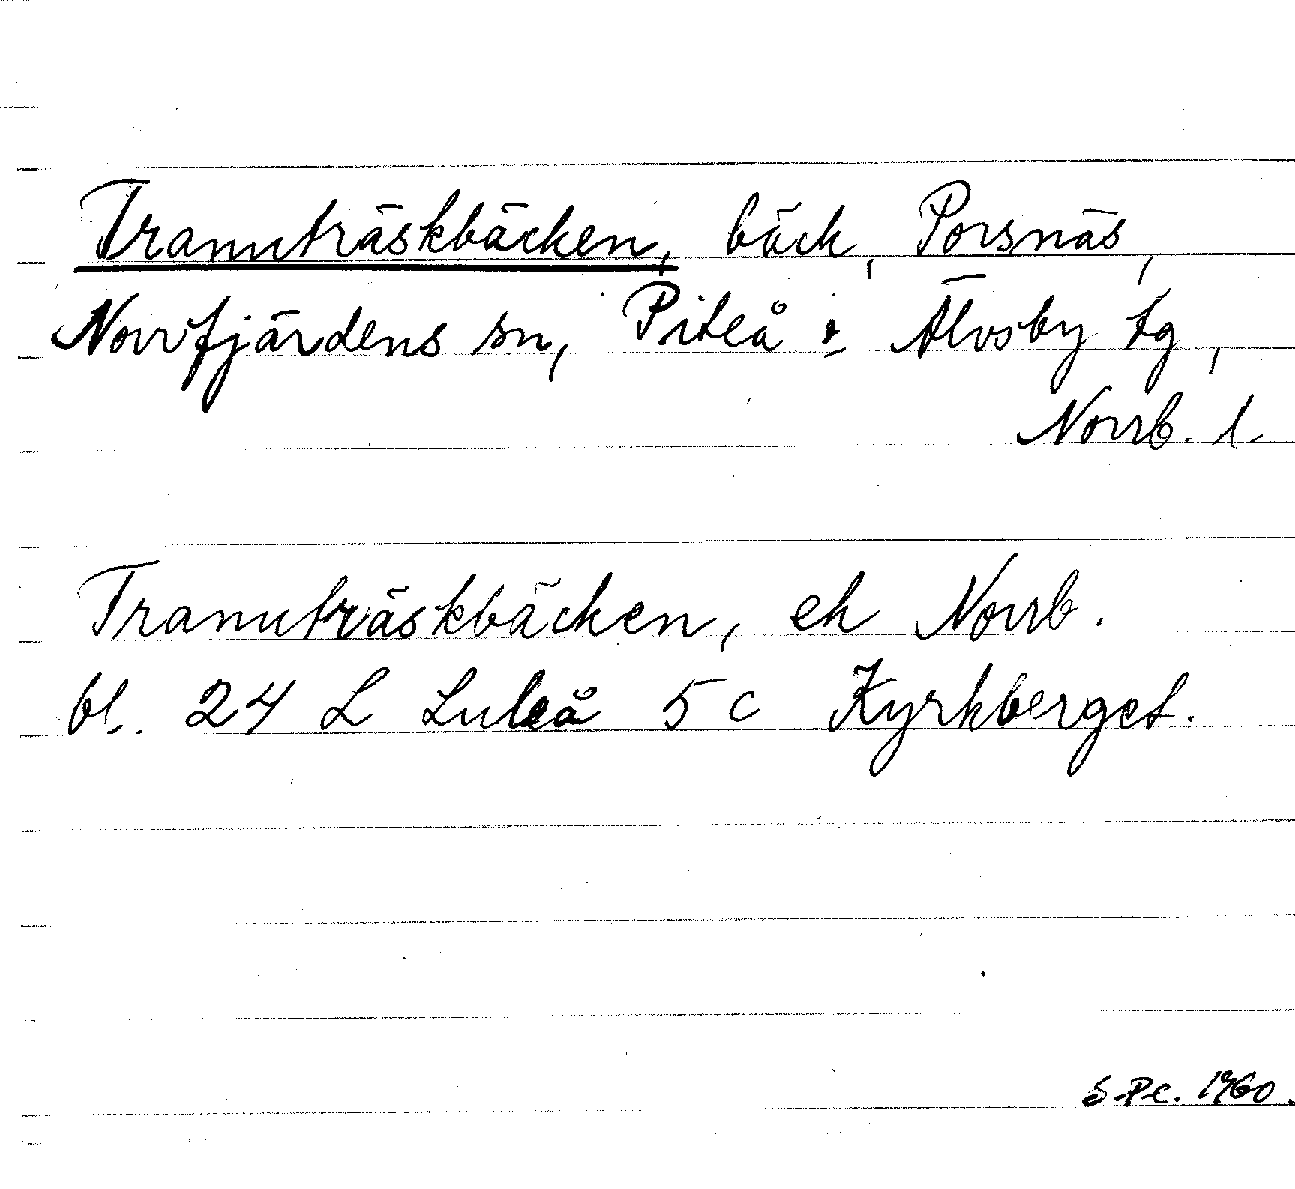 Tranuträskbäcken, bäck, Porsnäs,
Norrfjärdens sn, Piteå & Älvsby tg,
Norrb. l.
Tranuträskbäcken, ek Norrb.
bl. 24 L Luleå 5 c Kyrkberget.
S.Pc. 1960.